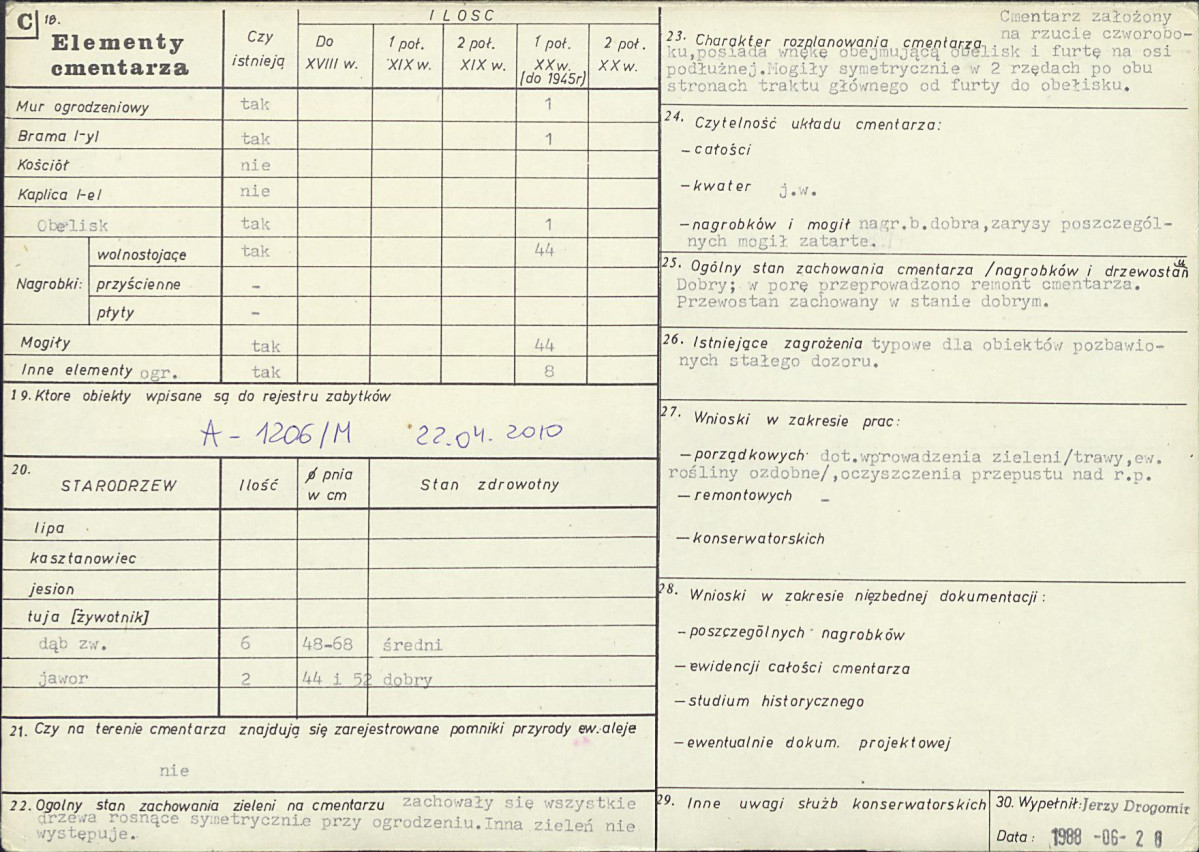 C 18.
Elementy
cmentarza
Czy
istnieją
ILOSC
Do
XVIII w.
1 poł.
XIX w.
2 poł.
XIX w.
1 poł.
XX w.
(do 1945r)
2 poł.
XX w.
Mur ogrodzeniowy tak 1
Brama /-y/ tak 1
Kościół nie
Kaplica /-e/ nie
Obelisk tak 1
Nagrobki: wolnostojące tak 44
przyścienne -
płyty -
Mogiły tak 44
Inne elementy ogr. tak 8
19. Ktore obiekty wpisane są do rejestru zabytków
A - 1206/M 22.04. 2010
20.
STARODRZEW
Ilość
ø pnia
w cm
Stan zdrowotny
lipa
kasztanowiec
jesion
tuja [żywotnik]
dąb zw. 6 48-68 średni
jawor 2 44 i 52 dobry
21. Czy na terenie cmentarza znajdują się zarejestrowane pomniki przyrody ew. aleje
nie
22. Ogolny stan zachowania zieleni na cmentarzu zachowały się wszystkie
drzewa rosnące symetrycznie przy ogrodzeniu.Inna zieleń nie
występuje.
Cmentarz założony
23. Charakter rozplanowania cmentarza na rzucie czworobo-
ku,posiada wnękę obejmującą obelisk i furtę na osi
podłużnej.Mogiły symetrycznie w 2 rzędach po obu
stronach traktu głównego od furty do obełisku.
24. Czytelność układu cmentarza:
- całości
- kwater j.w.
- nagrobków i mogił nagr.b.dobra,zarysy poszczegól-
nych mogił zatarte.
25. Ogólny stan zachowania cmentarza /nagrobków i drzewostan
Dobry; w porę przeprowadzono remont cmentarza.
Przewostan zachowany w stanie dobrym.
26. Istniejące zagrożenia typowe dla obiektów pozbawio-
nych stałego dozoru.
27. Wnioski w zakresie prac:
- porządkowych dot.wprowadzenia zieleni/trawy,ew.
rośliny ozdobne/,oczyszczenia przepustu nad r.p.
- remontowych -
- konserwatorskich
28. Wnioski w zakresie niezbednej dokumentacji:
- poszczególnych nagrobków
- ewidencji całości cmentarza
- studium historycznego
- ewentualnie dokum. projektowej
29. Inne uwagi służb konserwatorskich
30. Wypełnił: Jerzy Drogomir
Data: 1988 -06- 28